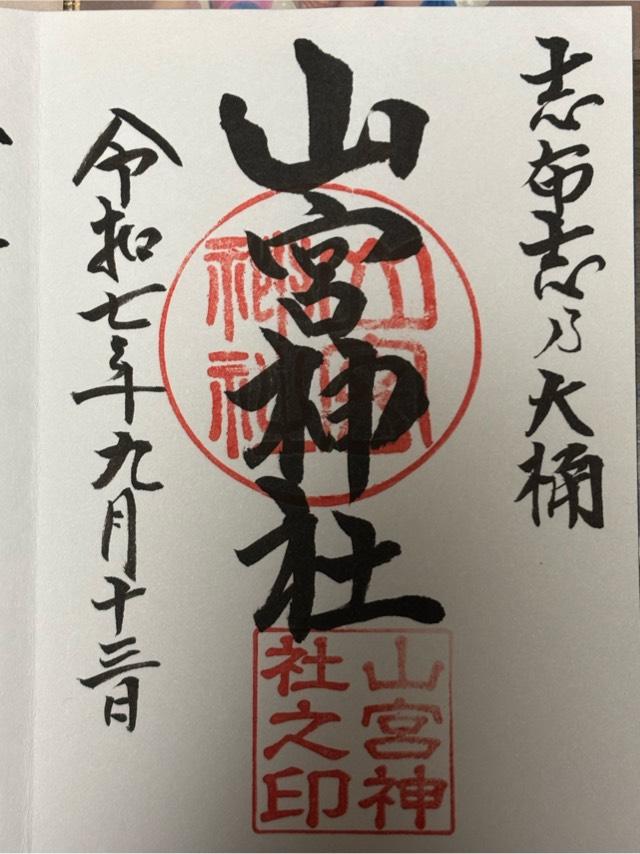 志布志乃大桶
山宮神社
山宮神社
山宮神社之印
令和七年九月十三日